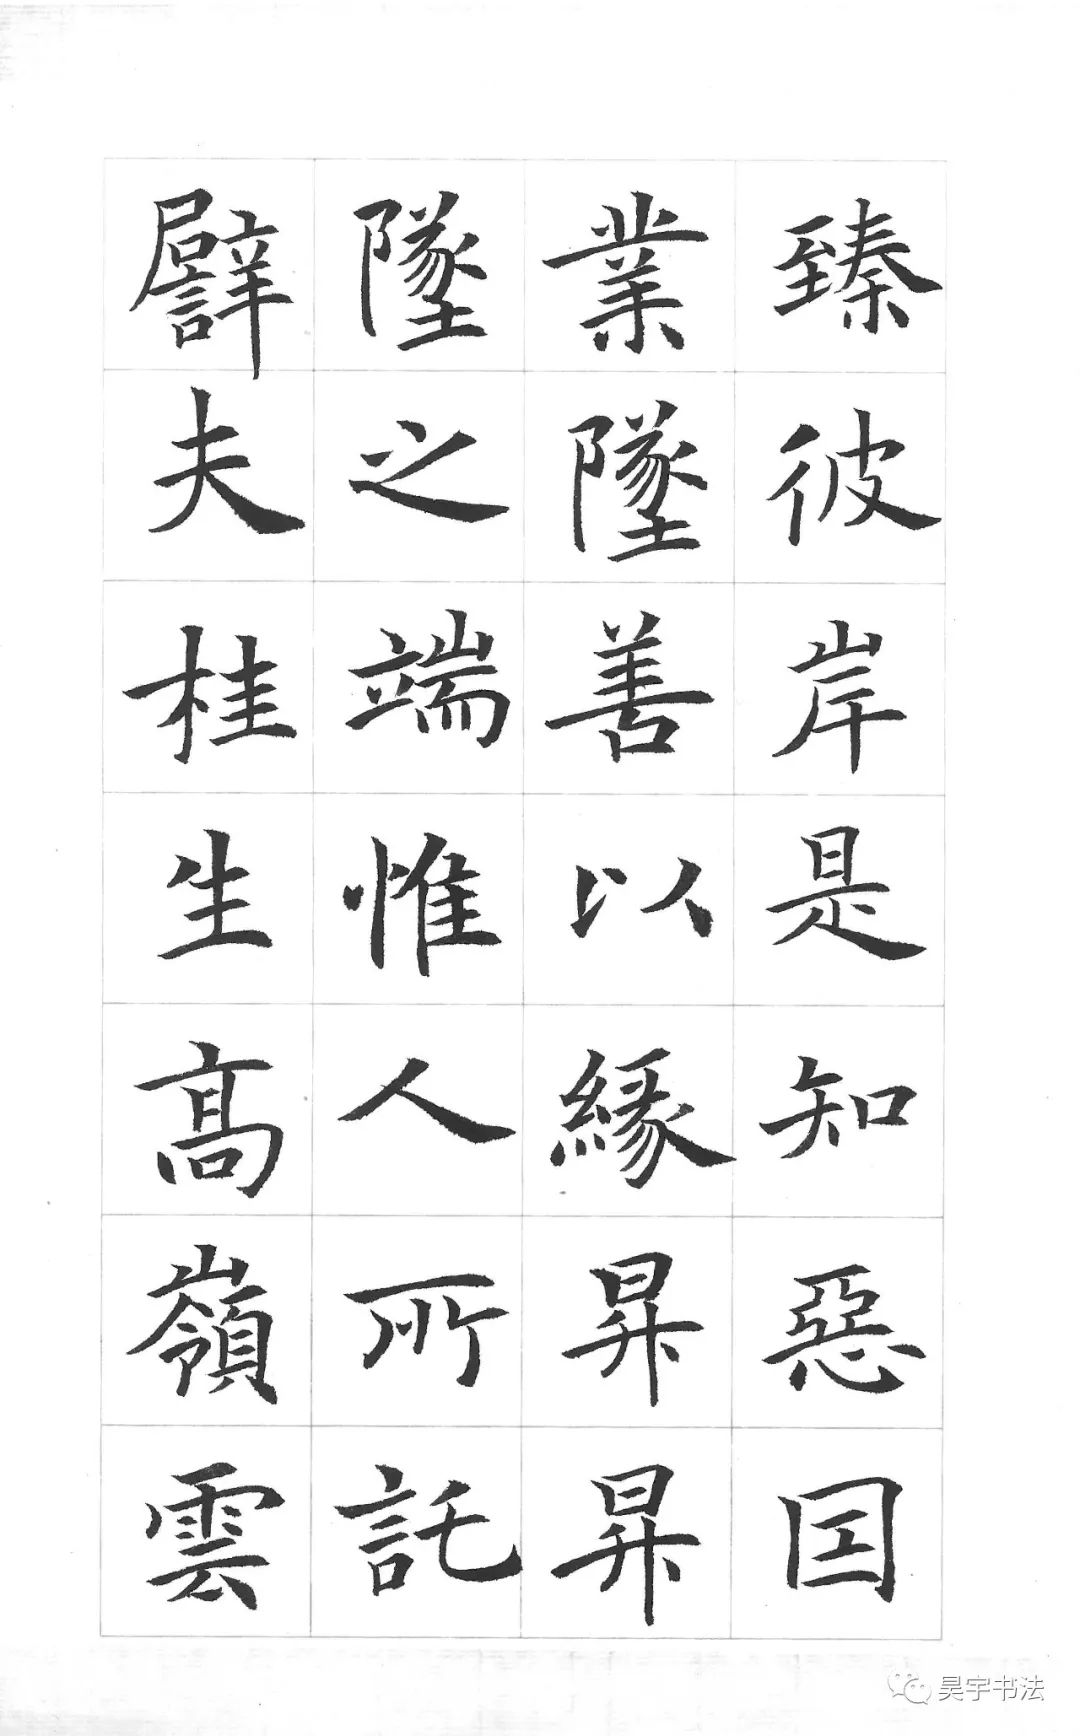 臻彼岸是知惡囙
業墜善以緣昇昇
墜之端惟人所託
譬夫桂生高嶺雲
昊宇书法